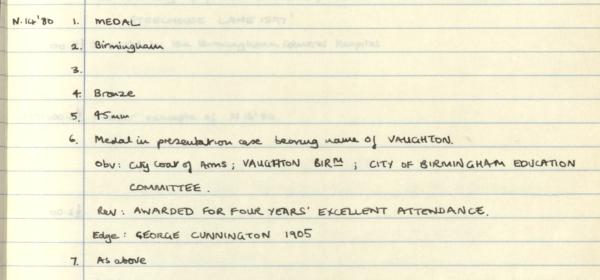 N.14'80 1. MEDAL
2. Birmingham
3.
4. Bronze
5. 45mm
6. Medal in presentation case bearing name of VAUGHTON.
Obv: City Coat of Arms; VAUGHTON BIRM; CITY OF BIRMINGHAM EDUCATION
COMMITTEE.
Rev: AWARDED FOR FOUR YEARS' EXCELLENT ATTENDANCE.
Edge: GEORGE CUNNINGTON 1905
7. As above